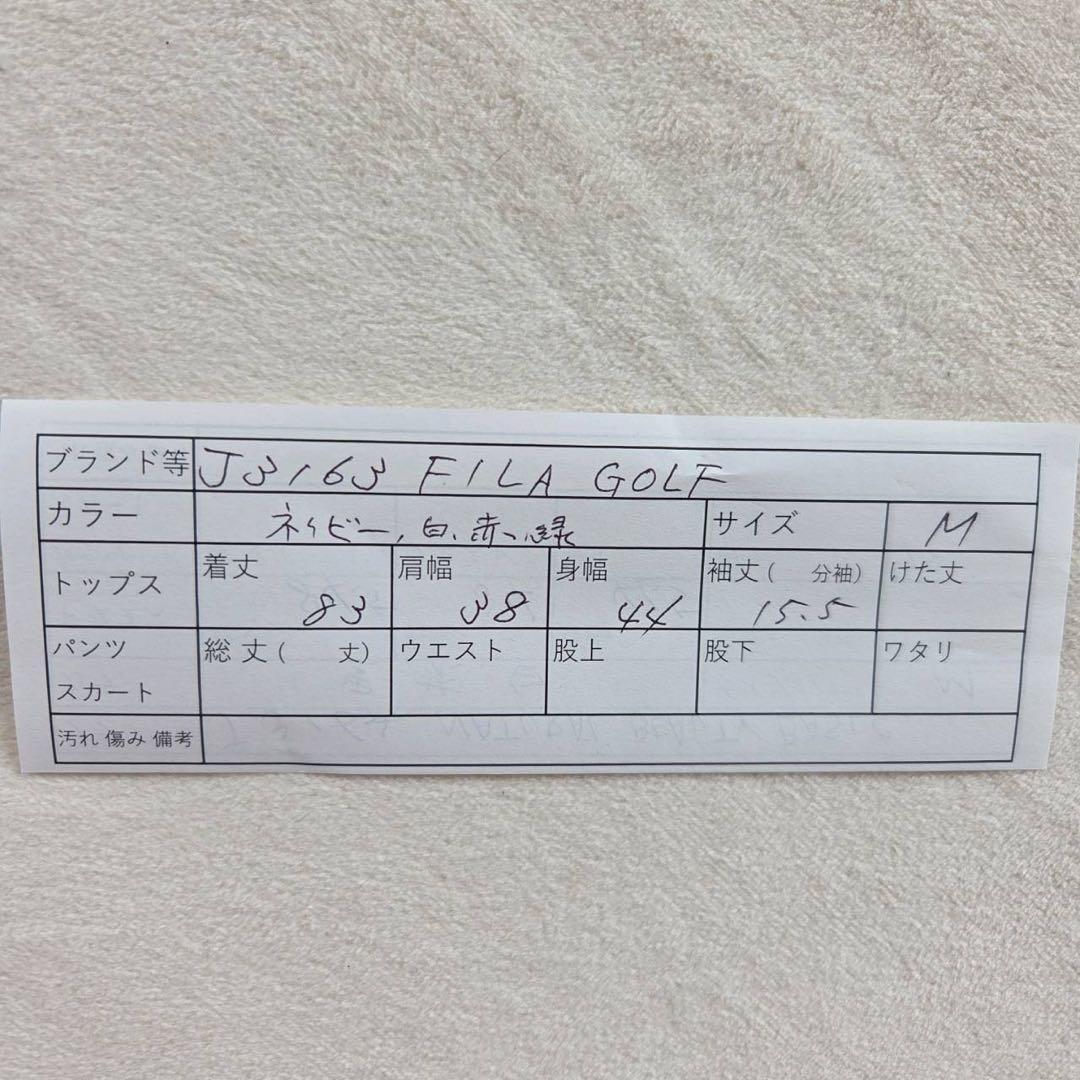 ブランド等 J3163 FILA GOLF
カラー ネイビー、白、赤、緑 サイズ M
トップス 着丈 83 肩幅 38 身幅 44 袖丈( 分袖) 15.5 けた丈
パンツ スカート 総丈( 丈) ウエスト 股上 股下 ワタリ
汚れ 傷み 備考